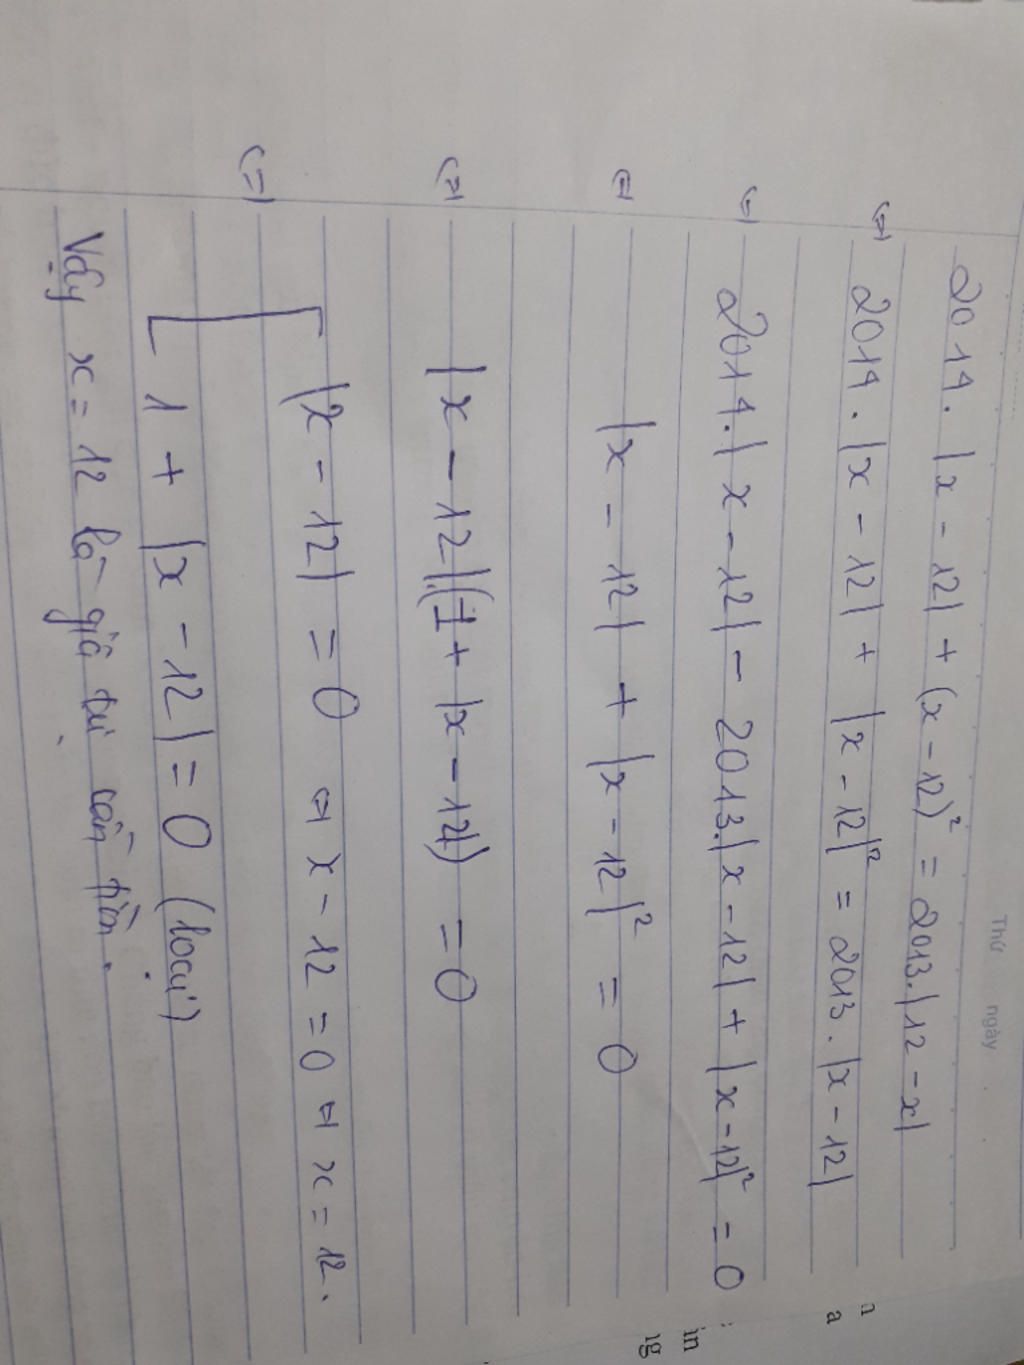 Thứ ngày
2014. |x - 12| + (x - 12)² = 2013.|12 - x|
(=) 2014. |x - 12| + |x - 12|² = 2013. |x - 12|
(=) 2014.|x - 12| - 2013.|x - 12| + |x - 12|² = 0
(=) |x - 12| + |x - 12|² = 0
(=) |x - 12|.(1 + |x - 12|) = 0
(=) [ |x - 12| = 0 ⇔ x - 12 = 0 ⇔ x = 12.
1 + |x - 12| = 0 (loại)
Vậy x = 12 là giá trị cần tìm.
n
a
in
ng